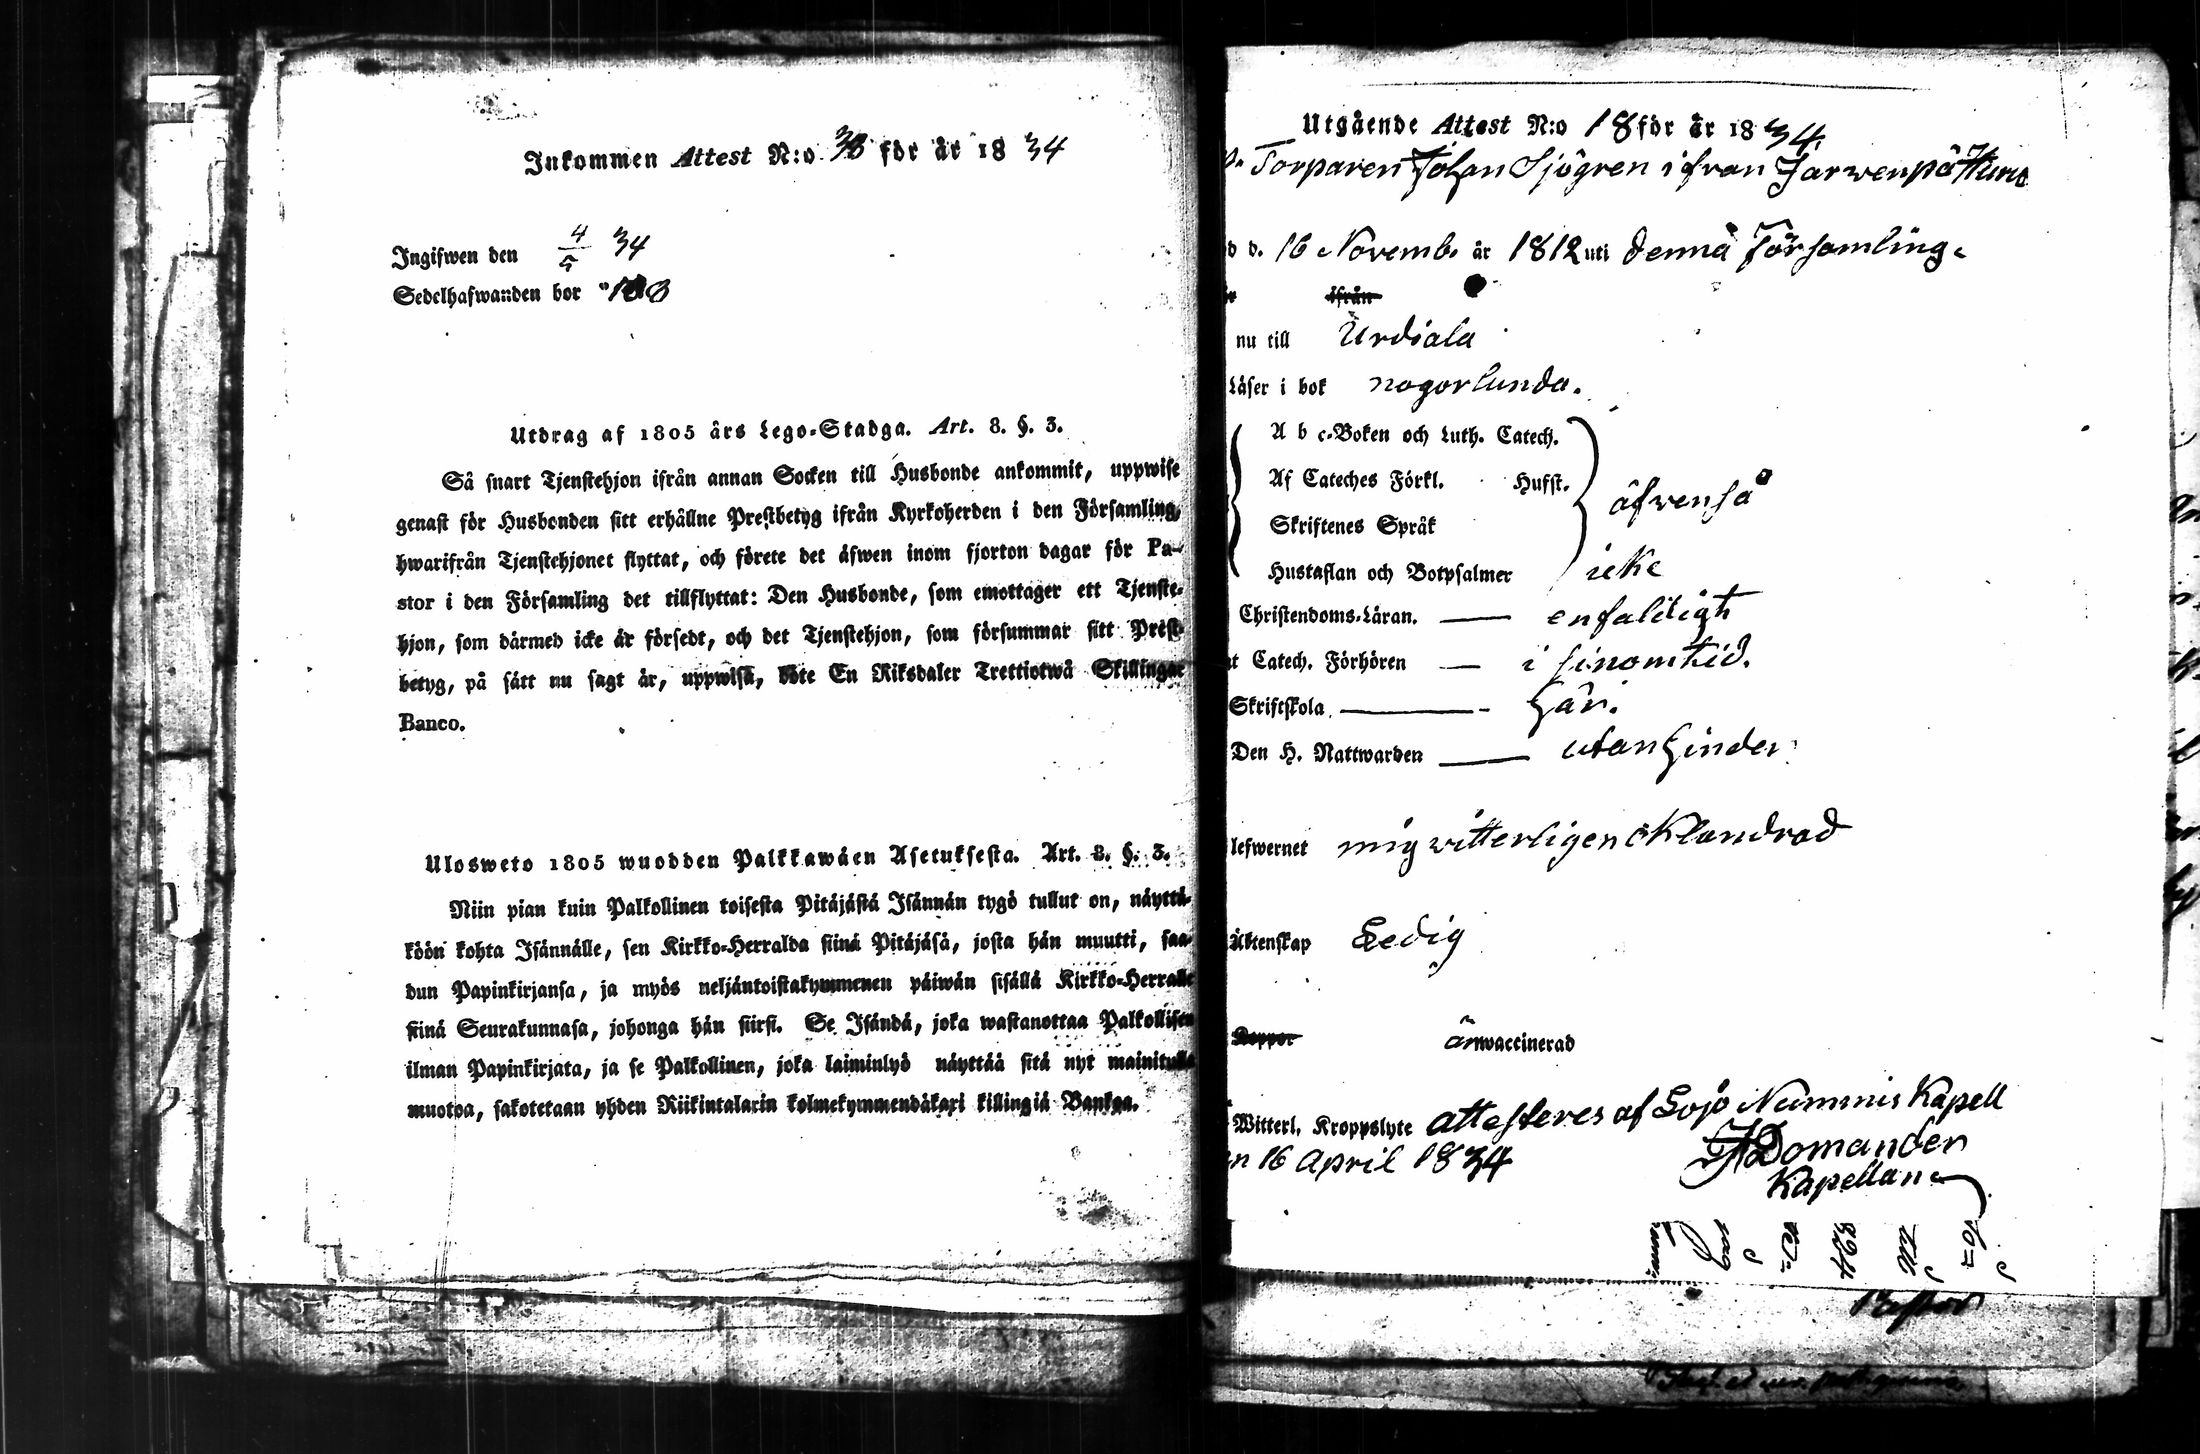 Inkommen Attest N:o 38 för år 1834
Ingifwen den 4/5 34
Sedelhafwanden bor
Utdrag af 1805 års Lego-Stadga. Art. 8. §. 3.
Så snart Tjenstehjon ifrån annan Socken till Husbonde ankommit, uppwise
genast för Husbonden sitt erhållne Prestbetyg ifrån Kyrkoherden i den Församling,
hwarifrån Tjenstehjonet flyttat, och förete det äfwen inom fjorton dagar för Pa-
stor i den Församling det tillflyttat: Den Husbonde, som emottager ett Tjenste-
hjon, som därmed icke är försedt, och det Tjenstehjon, som försummar sitt Prest-
betyg, på sätt nu sagt är, uppwisa, böte En Riksdaler Trettiotwå Skillingar
Banco.
Ulosweto 1805 wuodden Palkkawäen Asetuksesta. Art. 8. §. 3.
Niin pian kuin Palkollinen toisesta Pitäjästä Isännän tygö tullut on, näyttä-
köön kohta Isännälle, sen Kirkko-Herralda siinä Pitäjäsä, josta hän muutti, saa-
dun Papinkirjansa, ja myös neljäntoistakymmenen päiwän sisällä Kirkko-Herralle
siinä Seurakunnasa, johonga hän siirsi. Se Isändä, joka wastanottaa Palkollisen
ilman Papinkirjata, ja se Palkollinen, joka laiminlyö näyttää sitä nyt mainitulla
muotoa, sakotetaan yhden Riikintalarin kolmekymmendäkaxi killingiä Bankoa.
Utgående Attest N:o 18 för år 1834.
Torparen Johan Sjögren ifran Jarwenpä
d. 16 Novemb. år 1812 uti denna Församling.
ifrån
nu till Urdiala
Läser i bok nogorlunda.
A b c-Boken och Luth. Catech.
Af Cateches Förkl. Husst.
Skriftenes Språk
äfvenså
Hustaflan och Botpsalmer icke
Christendoms-Läran. enfaldigt
Catech. Förhören i sinom tid.
Skriftskola här.
Den H. Nattwarden utan hinder
lefwernet mig vitterligen oklandrad
Äktenskap Ledig
Koppor är waccinerad
Witterl. Kroppslyte attesteres af Lojo Nummis Kapell
16 April 1834
Domander
Kapellan